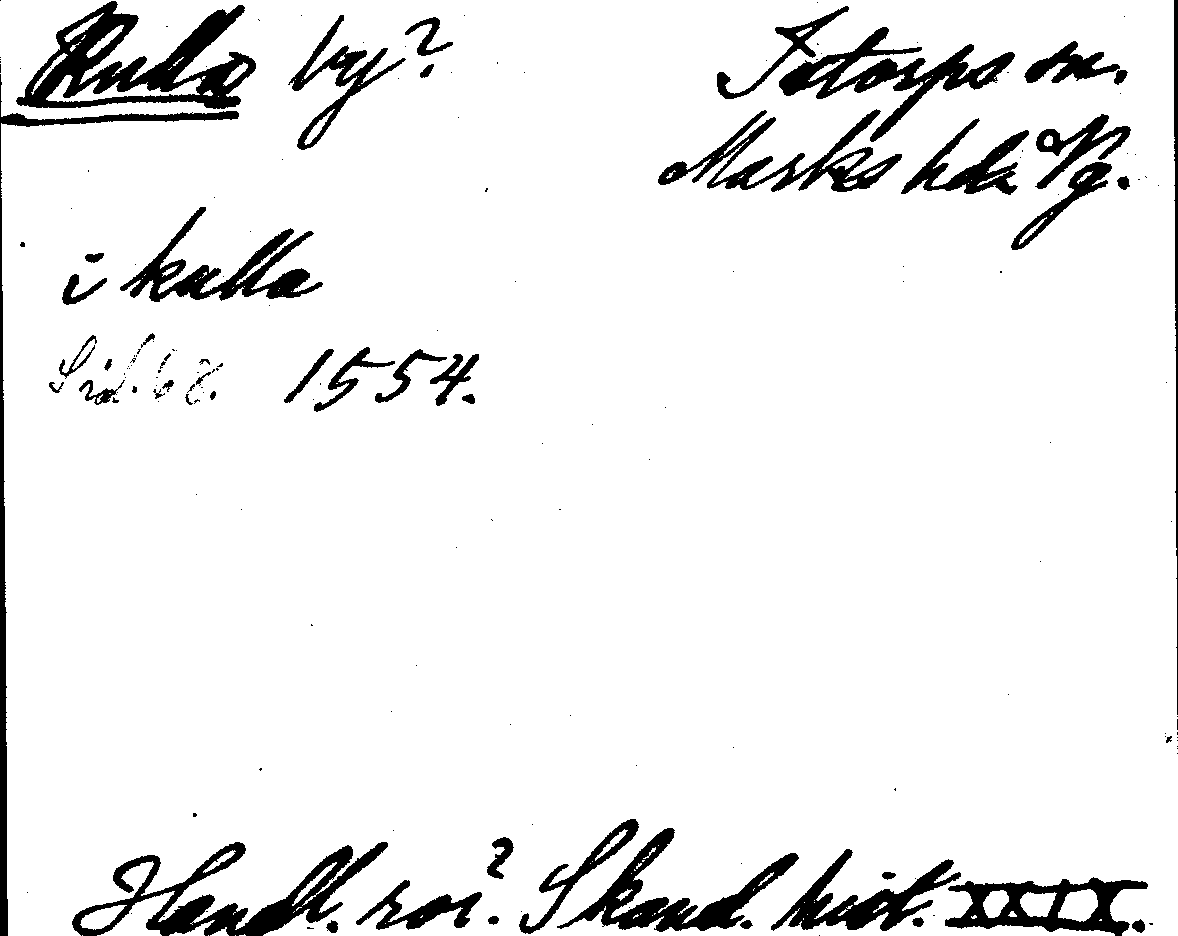 Kulla by?
Istorps sn.
Marks hd. Vg.
i kulla
Sid. 68. 1554.
Handl. rör. Skand. hist. XXIX.